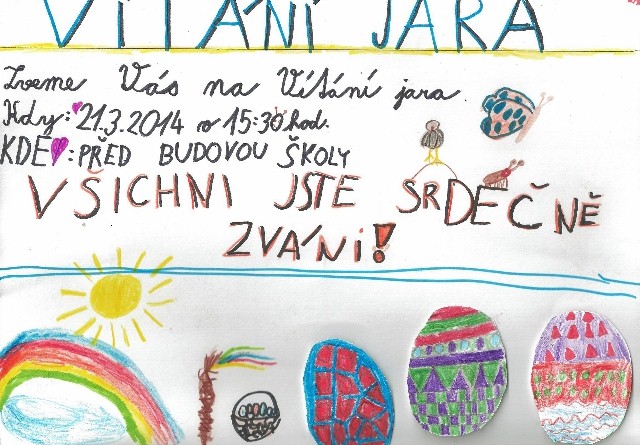 VÍTÁNÍ JARA
Zveme Vás na Vítání jara
Kdy: 21.3.2014 v 15:30 hod.
KDE: PŘED BUDOVOU ŠKOLY
VŠICHNI JSTE SRDEČNĚ
ZVÁNI!